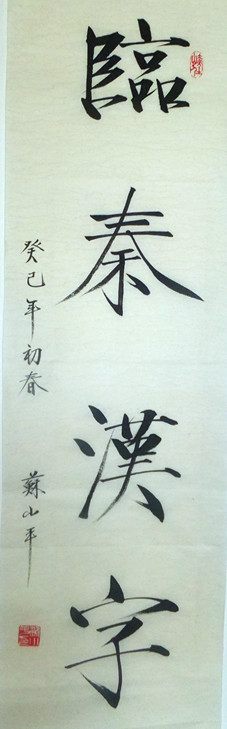 臨秦漢字
癸巳年初春 蘇小平